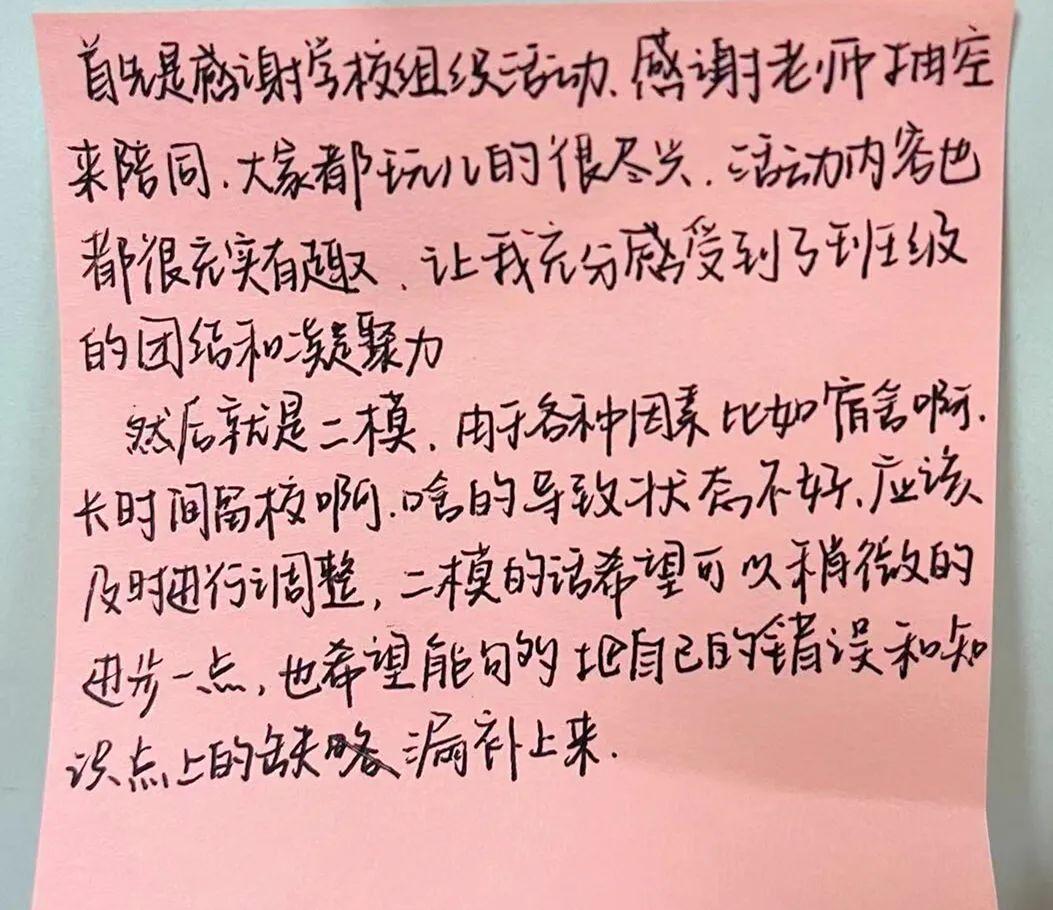 首先是感谢学校组织活动、感谢老师抽空
来陪同、大家都玩儿的很尽兴、活动内容也
都很充实有趣、让我充分感受到了班级
的团结和凝聚力
然后就是二模、由于各种因素比如宿舍啊、
长时间留校啊、啥的导致状态不好、应该
及时进行调整，二模的话希望可以稍微的
进步一点，也希望能够的把自己的错误和知
识点上的缺漏补上来.